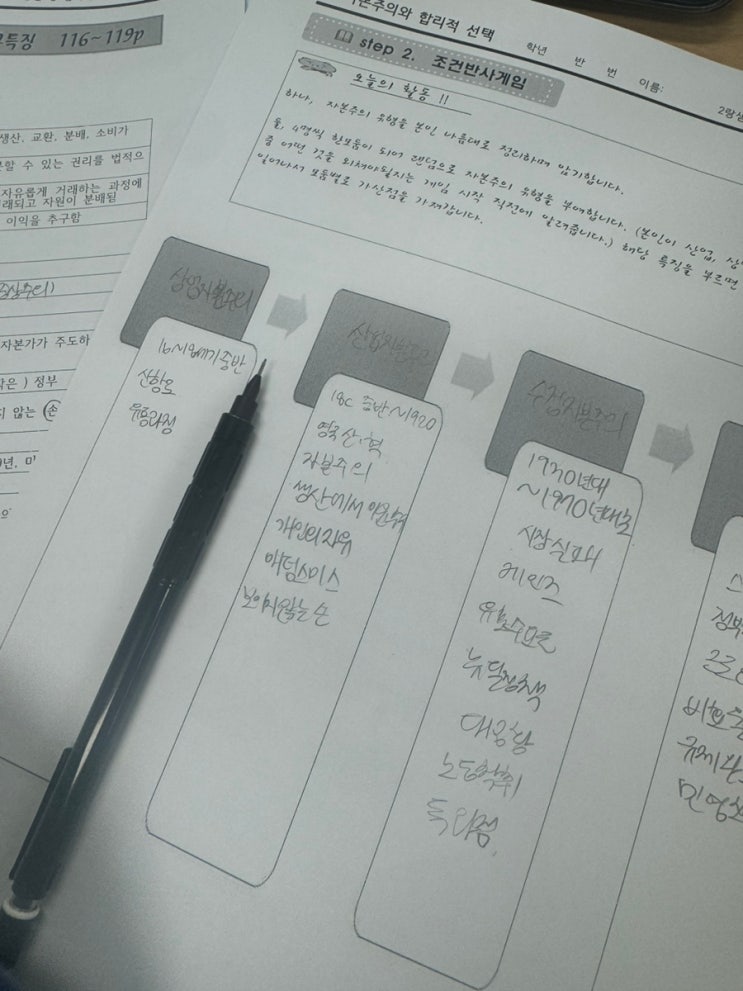 특징 116~119p
생산, 교환, 분배, 소비가
할 수 있는 권리를 법적으
자유롭게 거래하는 과정에
래되고 자원이 분배됨
이익을 추구함
자본가가 주도하
은 ) 정부
지 않는 (손
본주의와 합리적 선택
학년 반 번 이름:
step 2. 조건반사게임
오늘의 활동 !!
하나, 자본주의 유형을 본인 나름대로 정리하며 암기합니다.
둘, 4명씩 한모둠이 되어 랜덤으로 자본주의 유형을 부여합니다. (본인이 산업, 상
중 어떤 것을 외쳐야될지는 게임 시작 직전에 알려줍니다.) 해당 특징을 부르면
일어나서 모둠별로 가산점을 가져갑니다.
상업자본주의
16~18세기 중반
신항로
유통과정
산업자본주의
18C 중반~1920
영국 산.혁
자본주의
생산에서 이윤추구
개인의 자유
애덤스미스
보이지않는손
수정자본주의
1930년대
~1970년대초
시장실패
케인즈
유효수요론
뉴딜정책
대공황
독과점